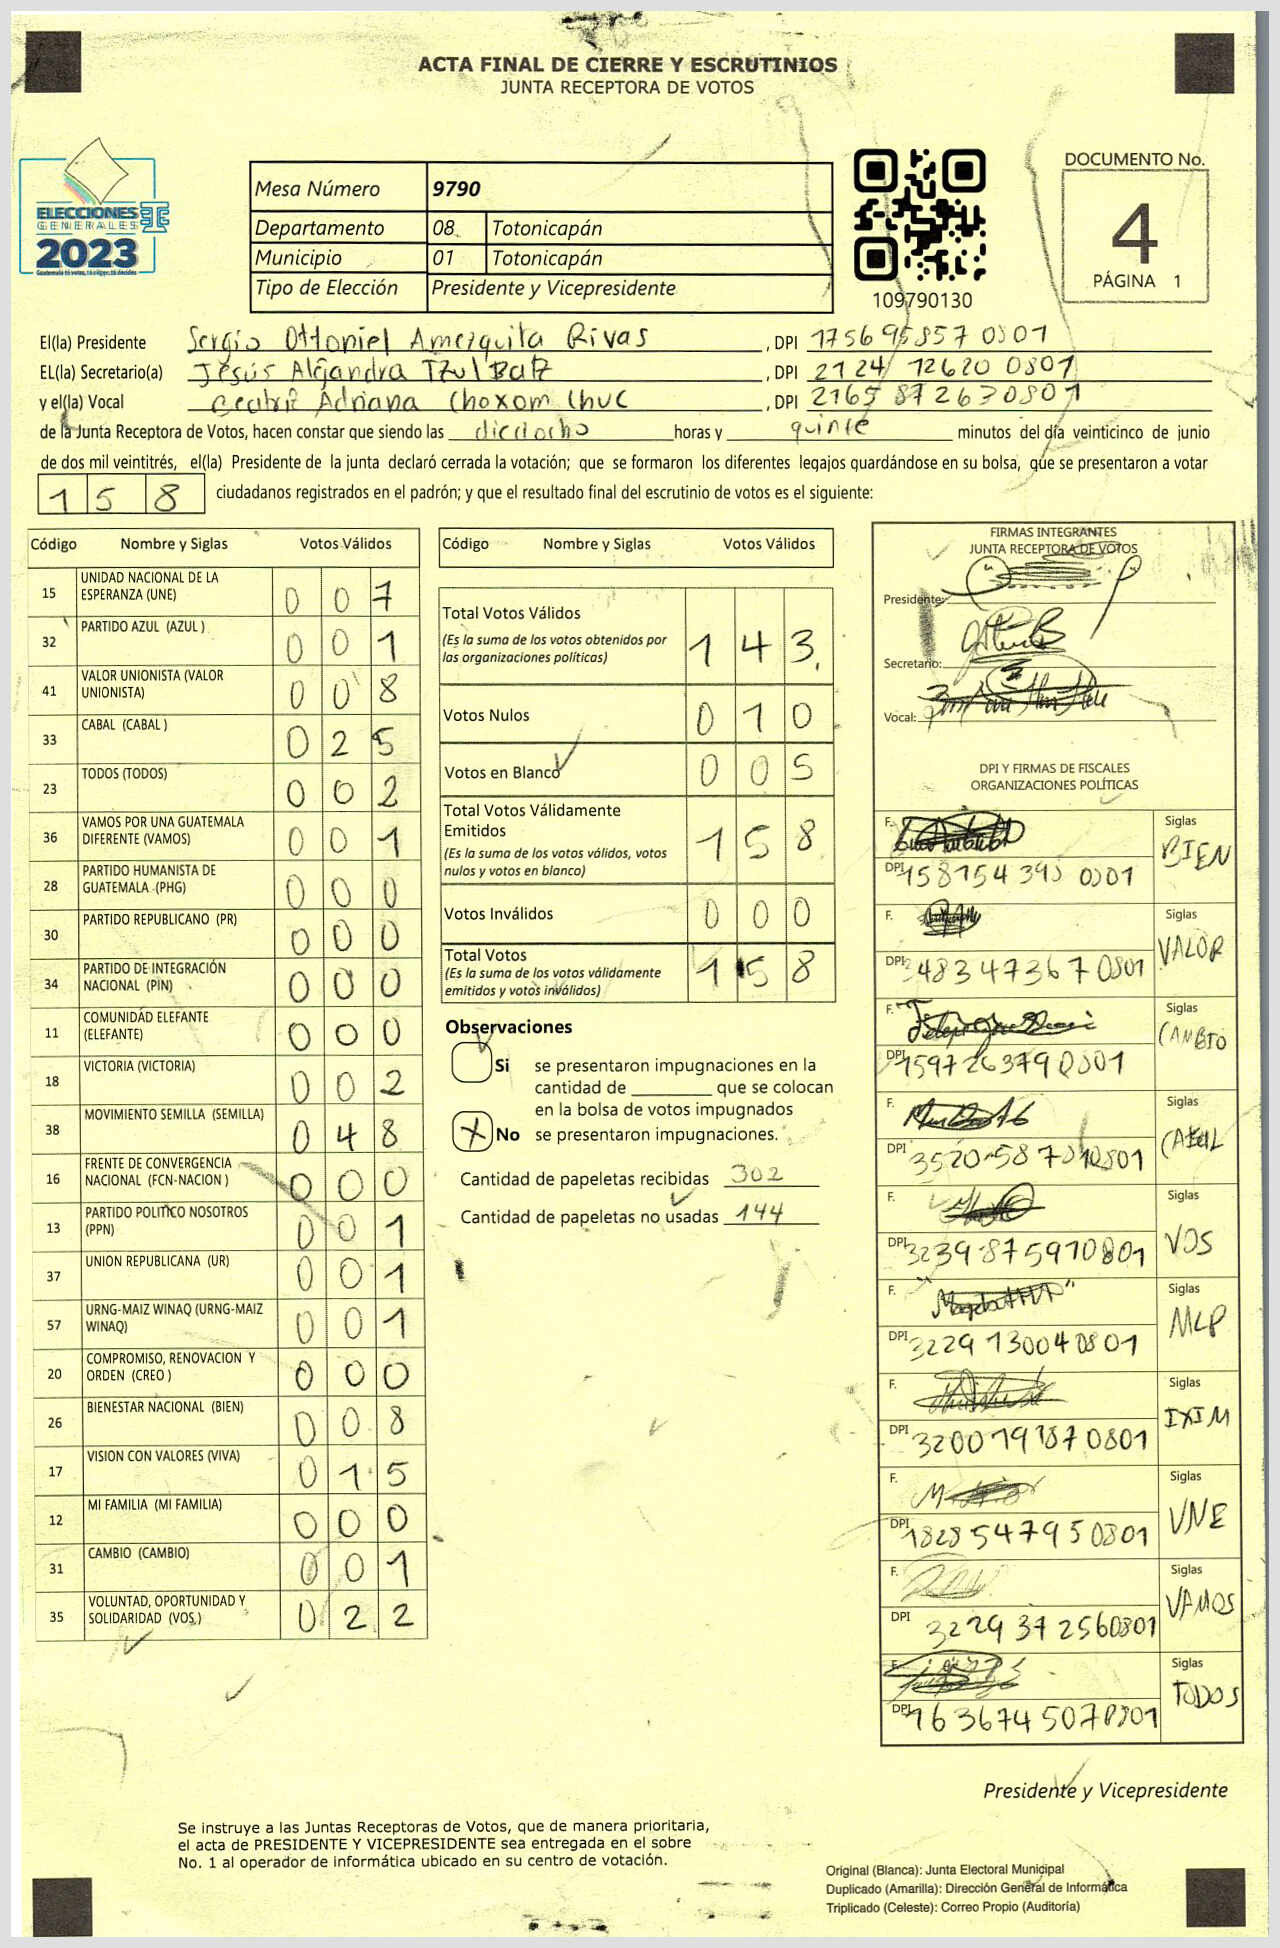 ACTA FINAL DE CIERRE Y ESCRUTINIOS
JUNTA RECEPTORA DE VOTOS
ELECCIONES
GENERALES
2023
Guatemala tú votas, tú eliges, tú decides
Mesa Número 9790
Departamento 08 Totonicapán
Municipio 01 Totonicapán
Tipo de Elección Presidente y Vicepresidente
109790130
DOCUMENTO No.
4
PÁGINA 1
El(la) Presidente Sergio Ottoniel Amezquita Rivas, DPI 175695857 0801
EL(la) Secretario(a) Jesús Alejandra Tzul Batz, DPI 2124 12620 0801
y el(la) Vocal Beatriz Adriana Choxom Chuc, DPI 2165 87263 0801
de la Junta Receptora de Votos, hacen constar que siendo las dieciocho horas y quince minutos del día veinticinco de junio
de dos mil veintitrés, el(la) Presidente de la junta declaró cerrada la votación; que se formaron los diferentes legajos guardándose en su bolsa, que se presentaron a votar
158 ciudadanos registrados en el padrón; y que el resultado final del escrutinio de votos es el siguiente:
Código Nombre y Siglas Votos Válidos
15 UNIDAD NACIONAL DE LA ESPERANZA (UNE) 0 0 7
32 PARTIDO AZUL (AZUL ) 0 0 1
41 VALOR UNIONISTA (VALOR UNIONISTA) 0 0 8
33 CABAL (CABAL ) 0 2 5
23 TODOS (TODOS) 0 0 2
36 VAMOS POR UNA GUATEMALA DIFERENTE (VAMOS) 0 0 1
28 PARTIDO HUMANISTA DE GUATEMALA (PHG) 0 0 0
30 PARTIDO REPUBLICANO (PR) 0 0 0
34 PARTIDO DE INTEGRACIÓN NACIONAL (PIN) 0 0 0
11 COMUNIDAD ELEFANTE (ELEFANTE) 0 0 0
18 VICTORIA (VICTORIA) 0 0 2
38 MOVIMIENTO SEMILLA (SEMILLA) 0 4 8
16 FRENTE DE CONVERGENCIA NACIONAL (FCN-NACION ) 0 0 0
13 PARTIDO POLITICO NOSOTROS (PPN) 0 0 1
37 UNION REPUBLICANA (UR) 0 0 1
57 URNG-MAIZ WINAQ (URNG-MAIZ WINAQ) 0 0 1
20 COMPROMISO, RENOVACION Y ORDEN (CREO ) 0 0 0
26 BIENESTAR NACIONAL (BIEN) 0 0 8
17 VISION CON VALORES (VIVA) 0 1 5
12 MI FAMILIA (MI FAMILIA) 0 0 0
31 CAMBIO (CAMBIO) 0 0 1
35 VOLUNTAD, OPORTUNIDAD Y SOLIDARIDAD (VOS ) 0 2 2
Código Nombre y Siglas Votos Válidos
Total Votos Válidos 1 4 3
(Es la suma de los votos obtenidos por
las organizaciones políticas)
Votos Nulos 0 1 0
Votos en Blanco 0 0 5
Total Votos Válidamente
Emitidos 1 5 8
(Es la suma de los votos válidos, votos
nulos y votos en blanco)
Votos Inválidos 0 0 0
Total Votos 1 5 8
(Es la suma de los votos válidamente
emitidos y votos inválidos)
Observaciones
Si se presentaron impugnaciones en la
cantidad de ________ que se colocan
en la bolsa de votos impugnados
X No se presentaron impugnaciones.
Cantidad de papeletas recibidas 302
Cantidad de papeletas no usadas 144
FIRMAS INTEGRANTES
JUNTA RECEPTORA DE VOTOS
Presidente:
Secretario:
Vocal:
DPI Y FIRMAS DE FISCALES
ORGANIZACIONES POLÍTICAS
F. Siglas BIEN
DPI 158754395 0801
F. Siglas VALOR
DPI 2483473670801
F. Siglas CAMBIO
DPI 1597263790801
F. Siglas
DPI
F. Siglas VOS
DPI 3239875970801
F. Siglas MLP
DPI 3229130040801
F. Siglas IXIM
DPI 3200191870801
F. Siglas UNE
DPI 1828547950801
F. Siglas VAMOS
DPI 3229372560801
F. Siglas TODOS
DPI 1636745070801
Presidente y Vicepresidente
Se instruye a las Juntas Receptoras de Votos, que de manera prioritaria,
el acta de PRESIDENTE Y VICEPRESIDENTE sea entregada en el sobre
No. 1 al operador de informática ubicado en su centro de votación.
Original (Blanca): Junta Electoral Municipal
Duplicado (Amarilla): Dirección General de Informática
Triplicado (Celeste): Correo Propio (Auditoría)